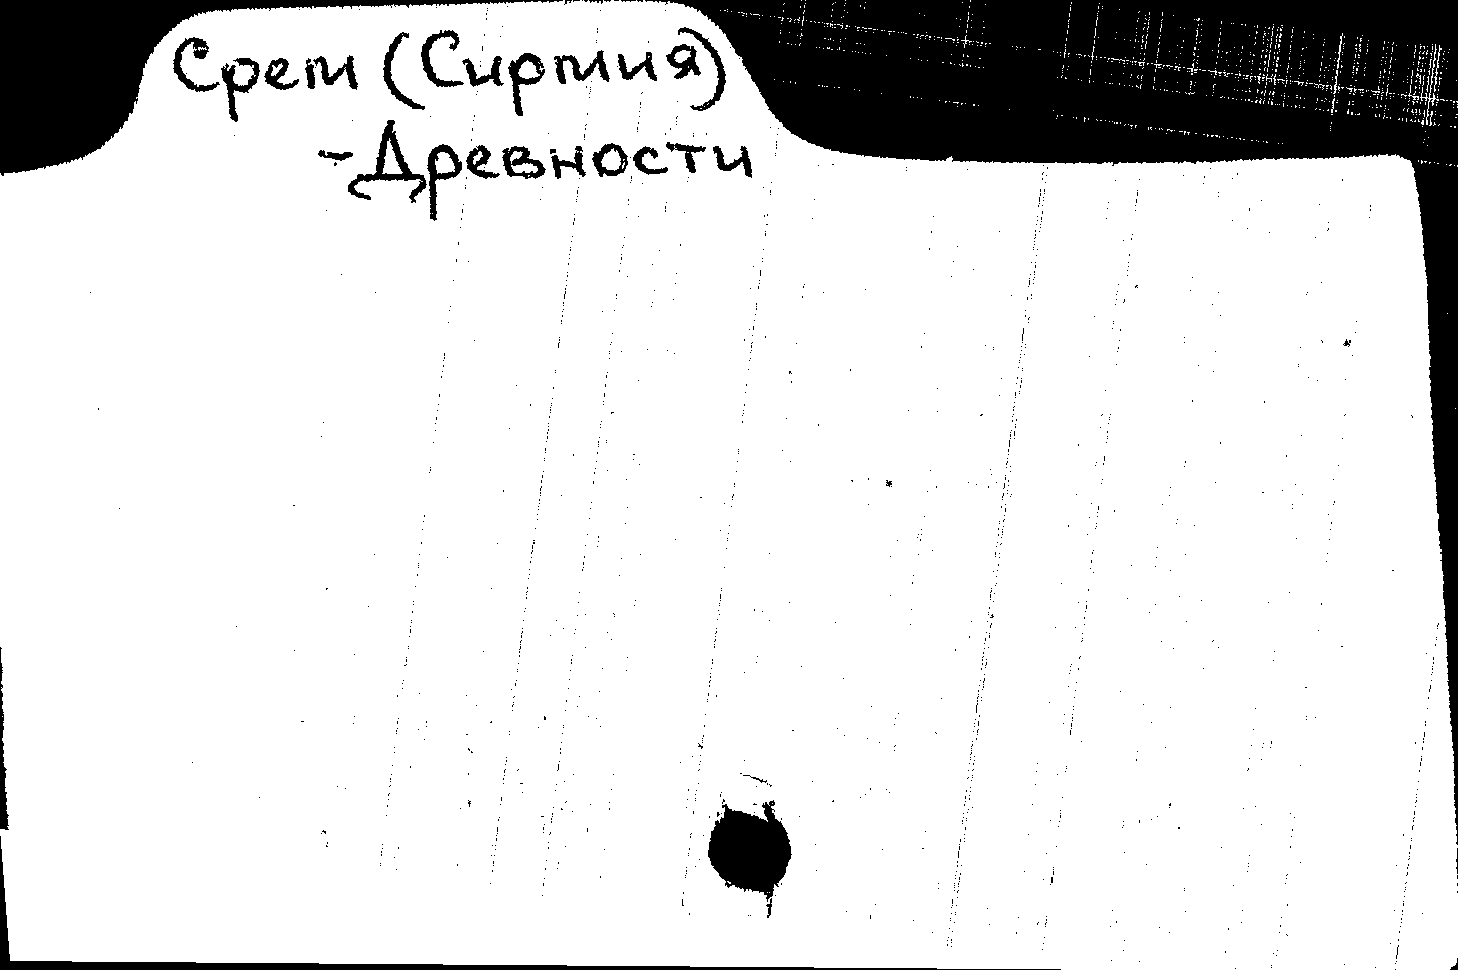 Срем (Сирмия)
-Древности